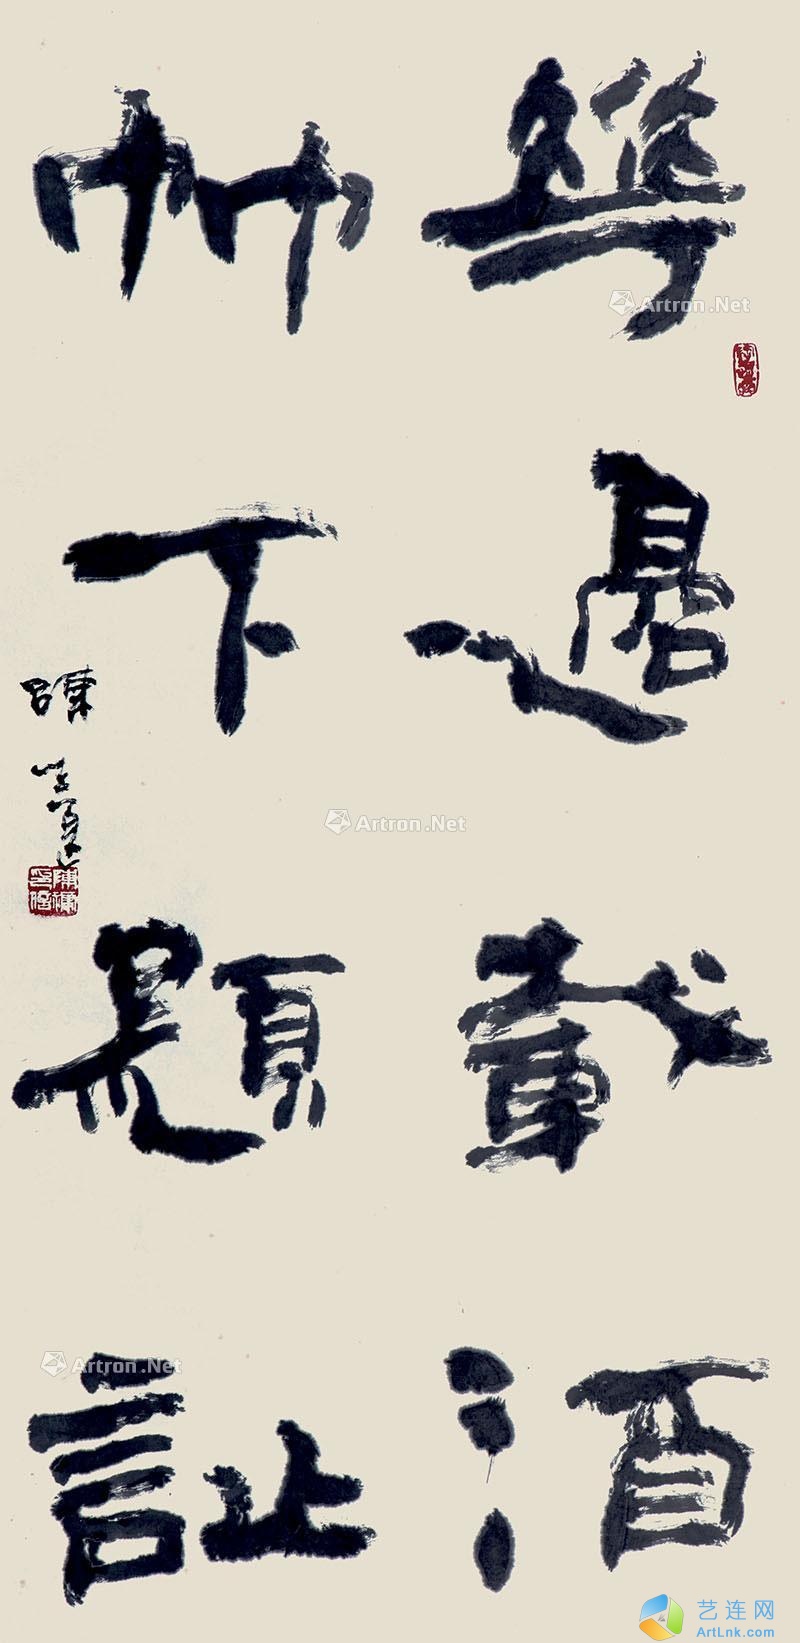 華邊載酒
竹下題詩
陳
Artron.Net
Artron.Net
Artron.Net
艺连网
ArtLnk.com